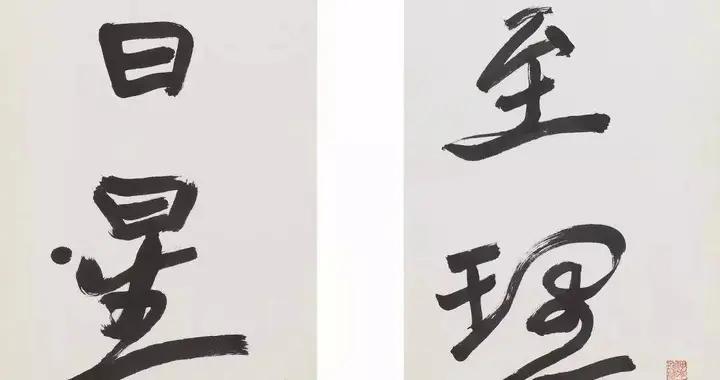 至理
日星